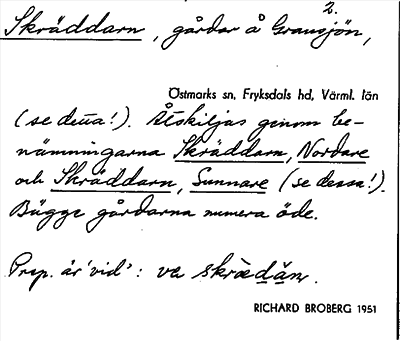 2.
Skräddarn, gårdar å Gransjön,
Östmarks sn, Fryksdals hd, Värml. län
(se denna!). Åtskiljas genom be-
nämningarna Skräddarn, Nordare
och Skräddarn, Sunnare (se dessa!).
Bägge gårdarna numera öde.
Prep. är 'vid': va skrädän.
RICHARD BROBERG 1951